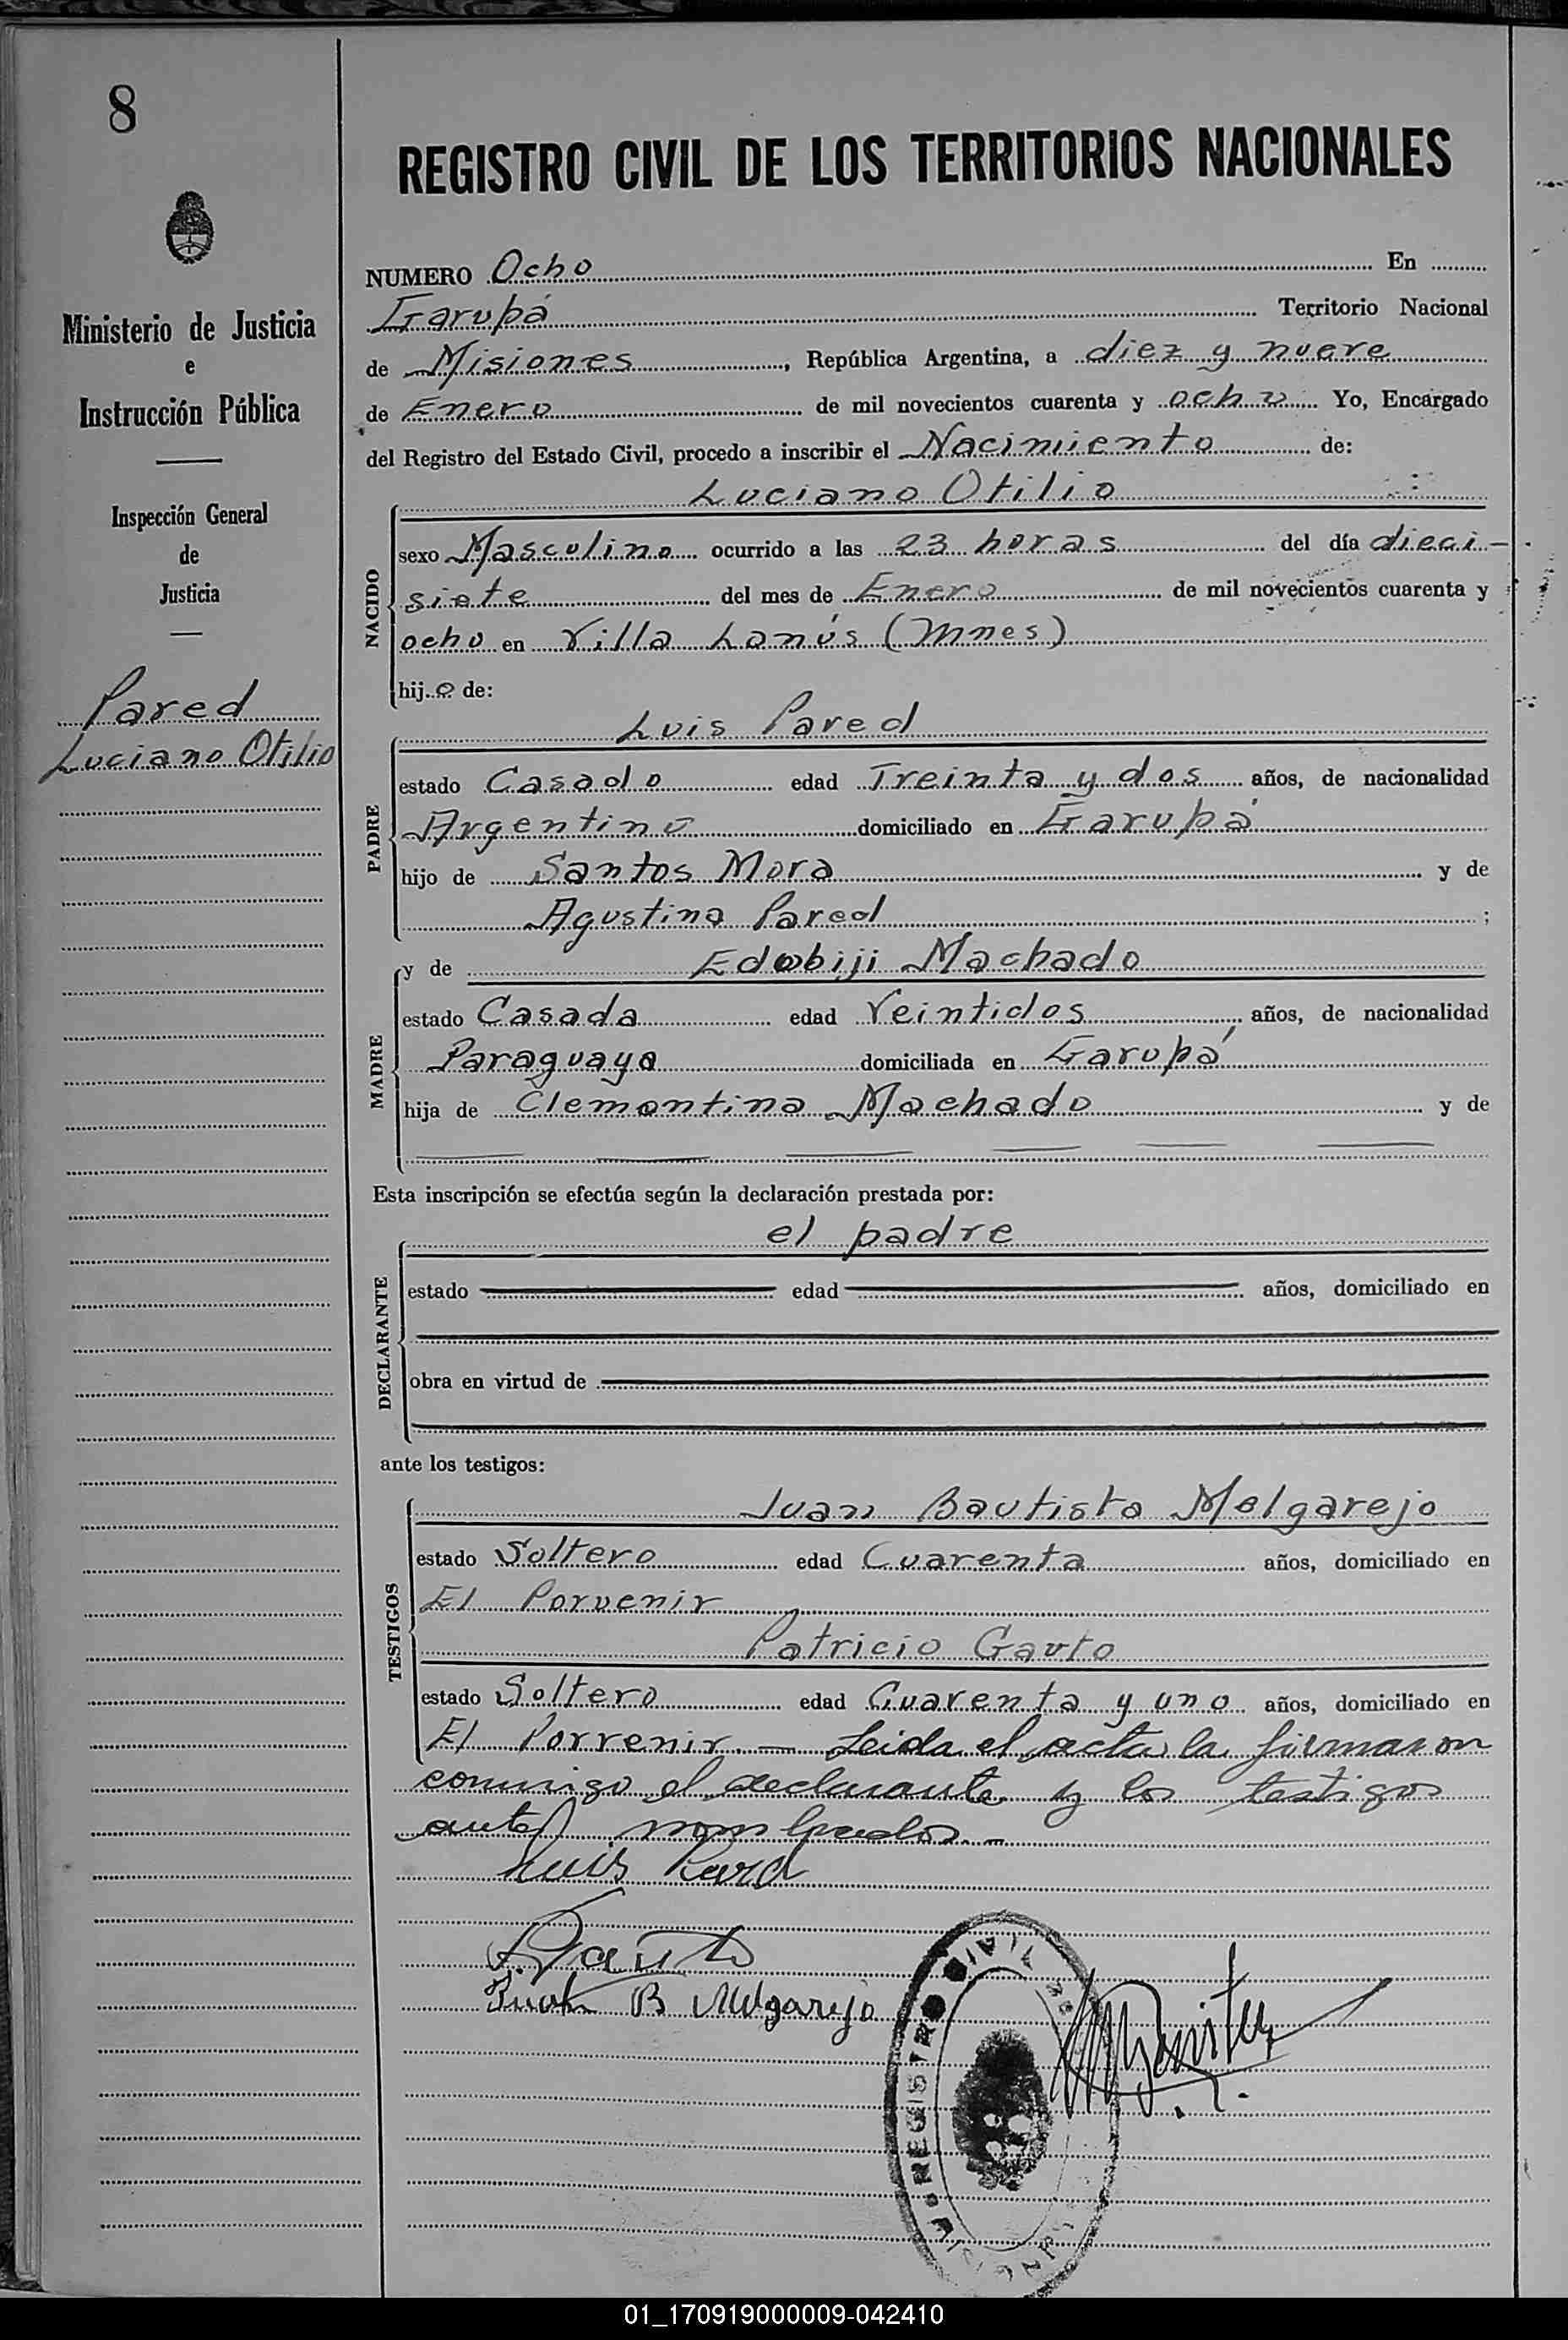 8
REGISTRO CIVIL DE LOS TERRITORIOS NACIONALES
Ministerio de Justicia
e
Instrucción Pública
Inspección General
de
Justicia
Pared
Luciano Otilio
NUMERO Ocho En
Garupá Territorio Nacional
de Misiones, República Argentina, a diez y nueve
de Enero de mil novecientos cuarenta y ocho Yo, Encargado
del Registro del Estado Civil, procedo a inscribir el Nacimiento de:
Luciano Otilio
NACIDO
sexo Masculino ocurrido a las 23 horas del día dieci-
siete del mes de Enero de mil novecientos cuarenta y
ocho en Villa Lanús (Mnes)
hijo de:
Luis Pared
PADRE
estado Casado edad Treinta y dos años, de nacionalidad
Argentino domiciliado en Garupá
hijo de Santos Mora y de
Agustina Pared ;
MADRE
y de Machado
estado Casada edad Veintidos años, de nacionalidad
Paraguaya domiciliada en Garupá
hija de Clementina Machado y de
Esta inscripción se efectúa según la declaración prestada por:
el padre
DECLARANTE
estado edad años, domiciliado en
obra en virtud de
ante los testigos:
Juan Bautista Melgarejo
TESTIGOS
estado Soltero edad Cuarenta años, domiciliado en
El Porvenir
Patricio Gauto
estado Soltero edad Cuarenta y uno años, domiciliado en
El Porvenir. — Leida el acta la firmaron
conmigo el declarante y los testigos
antes nombrados. —
Luis Pared
Gauto
Juan B Melgarejo
REGISTRO CIVIL
01_170919000009-042410